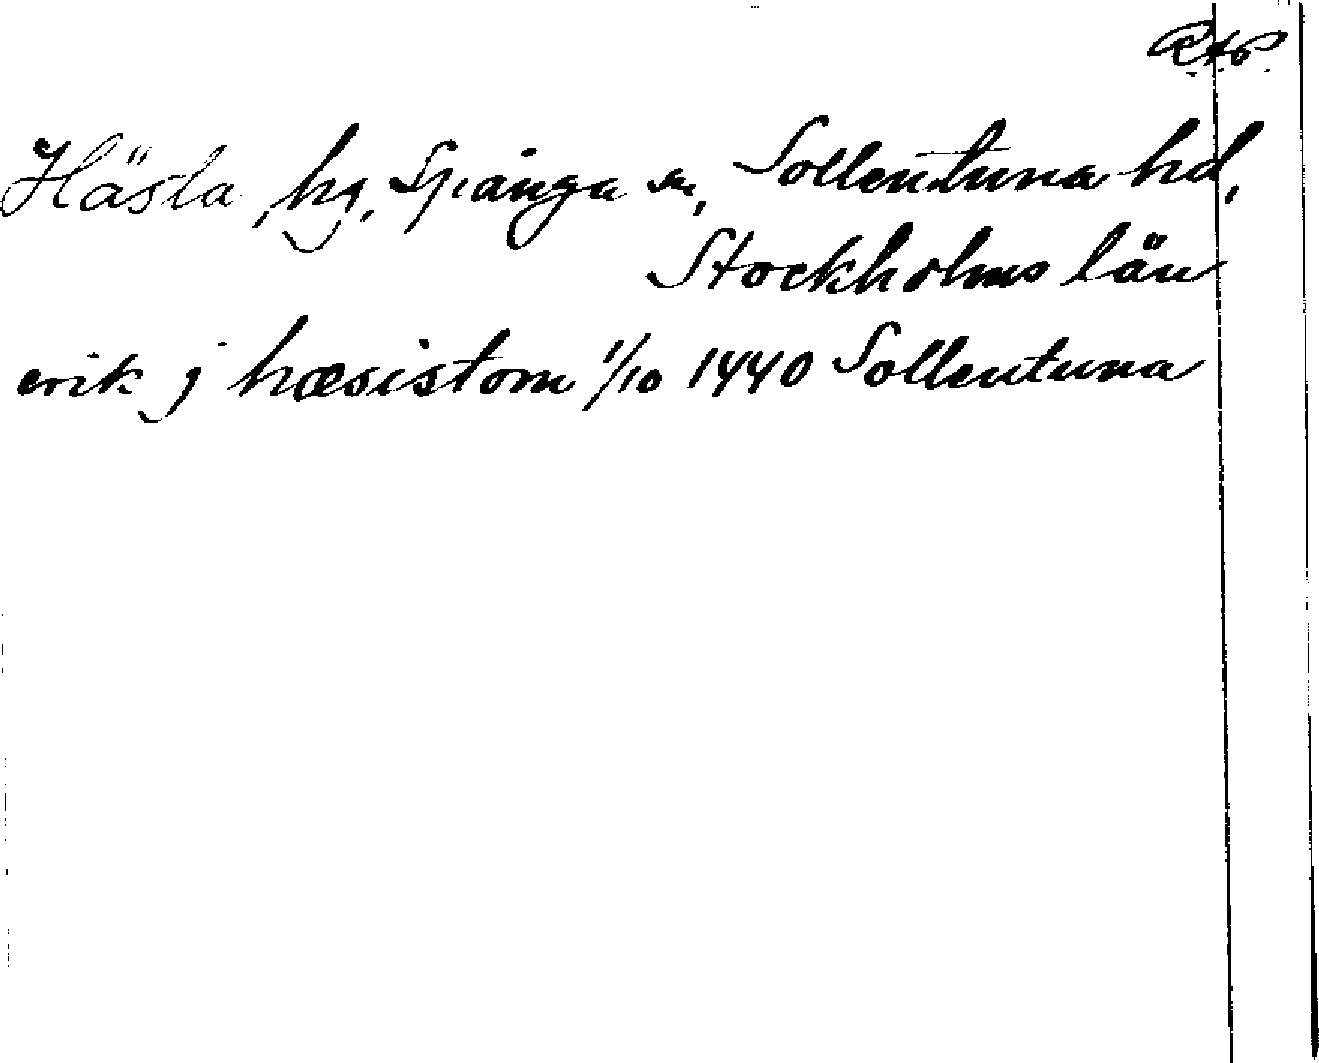 RAp
Hästa, hg, Spånga sn, Sollentuna hd,
Stockholms län
erik j hæsistom 1/10 1440 Sollentuna